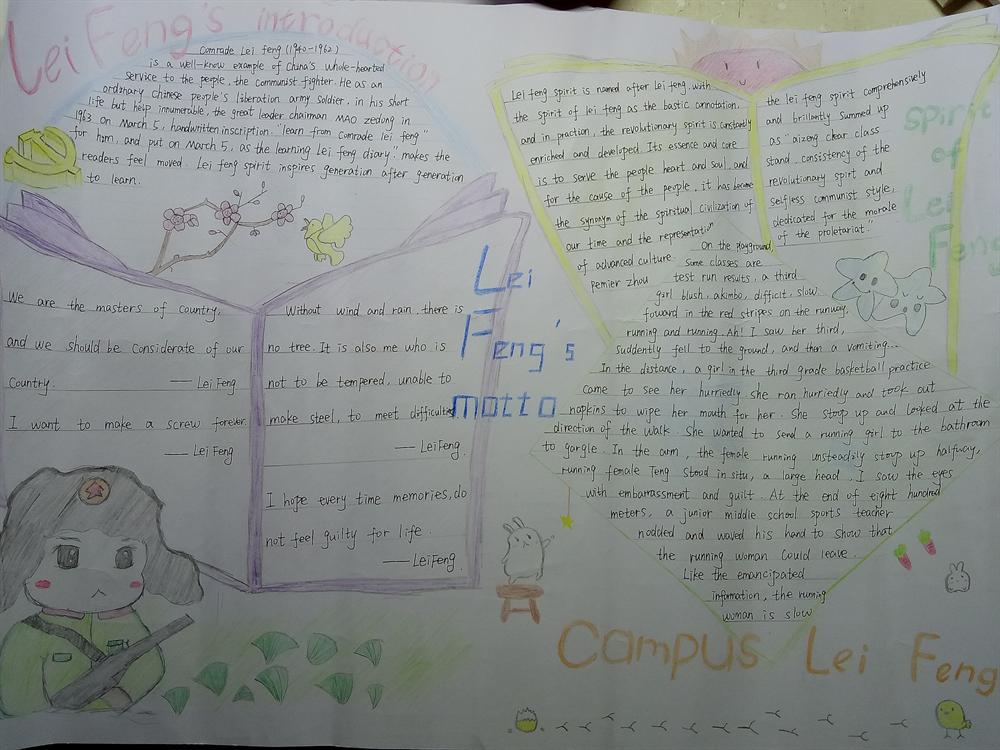 Lei Feng's introduction
Comrade Lei feng (1940-1962)
is a well-know example of China's whole-hearted
service to the people, the communist fighter. He as an
ordtnary Chinese people's liberation army soldier, in his short
life but help innumerable, the great leader chairman MAO zedong in
1963 on March 5, handwritten inscription. "learn from Comrade lei feng"
for hom, and put on March 5, as the learning Lei feng diary" makes the
readers feel moved. Lei feng spirit inspires generation after generation
to learn.
We are the masters of country,
and we should be Considerate of our
Country. —— Lei Feng
I want to make a screw forever.
—— Lei Feng
Without wind and rain, there is
no tree. It is also me who is
not to be tempered, unable to
make steel, to meet difficulties
—— Lei Feng.
I hope every time memories, do
not feel guilty for life.
—— Lei Feng.
Lei
Feng's
motto
Lei feng spirit is named after Lei feng, with
the spirit of lei feng as the bastic connotation,
and in praction, the revolutionary spirit is constantly
enriched and developed. Its essence and core
is to serve the people heart and soul, and
for the cause of the people, it has become
the synonym of the spiritual civilization of
our time and the representati
of advanced culture.
the lei feng spirit comprehensively
and brilliantly summed up
as "aizeng clear class
stand, consistency of the
revolutionary spirt and
selfless communist style,
dedicated for the morale
of the proletariat."
Spirit
of
Lei
Feng
On the playground,
Some classes are
Pemier zhou test run results, a third
girl blush, akimbo, difficlt, slow
foward in the red stripes on the runway,
running and running. Ah! I saw her third,
suddently fell to the ground, and then a vomiting...
In the distance, a girl in the third grade basketball practice
came to see her hurriedly she ran hurriedly and took out
napkins to wipe her mouth for her. She stoop up and looked at the
direction of the walk. She wanted to send a running girl to the bathroom
to gargle. In the arm, the female running unsteadily stoup up halfway,
running female Teng stood in situ, a large head. I saw the eyes
with embarrassment and guilt. At the end of eight hundred
meters, a junior middle school sports teacher
nodded and waved his hand to show that
the running woman could leave.
Like the emancipated
information, the running
woman is slow
Campus Lei Feng